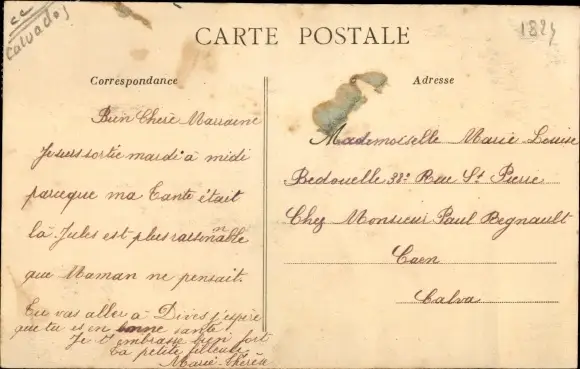 cc
Calvados
1824
CARTE POSTALE
Correspondance
Adresse
Bien Chère Marraine
Je suis sortie mardi à midi
parceque ma Tante était
là Jules est plus raisonnable
que Maman ne pensait.
Tu vas aller à Dives j'espère
que tu es en bonne santé
Je t'embrasse bien fort
ta petite filleule
Marie-Thérèse
Mademoiselle Marie Louise
Bedouelle 38 Rue St Pierre
Chez Monsieur Paul Regnault
Caen
Calva